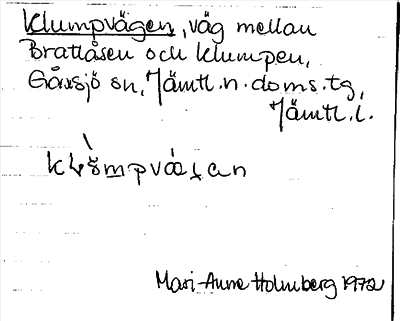 Klumpvägen, väg mellan
Brattåsen och Klumpen,
Gåxsjö sn, Jämtl. n. doms. tg,
Jämtl. l.
Mari-Anne Holmberg 1972